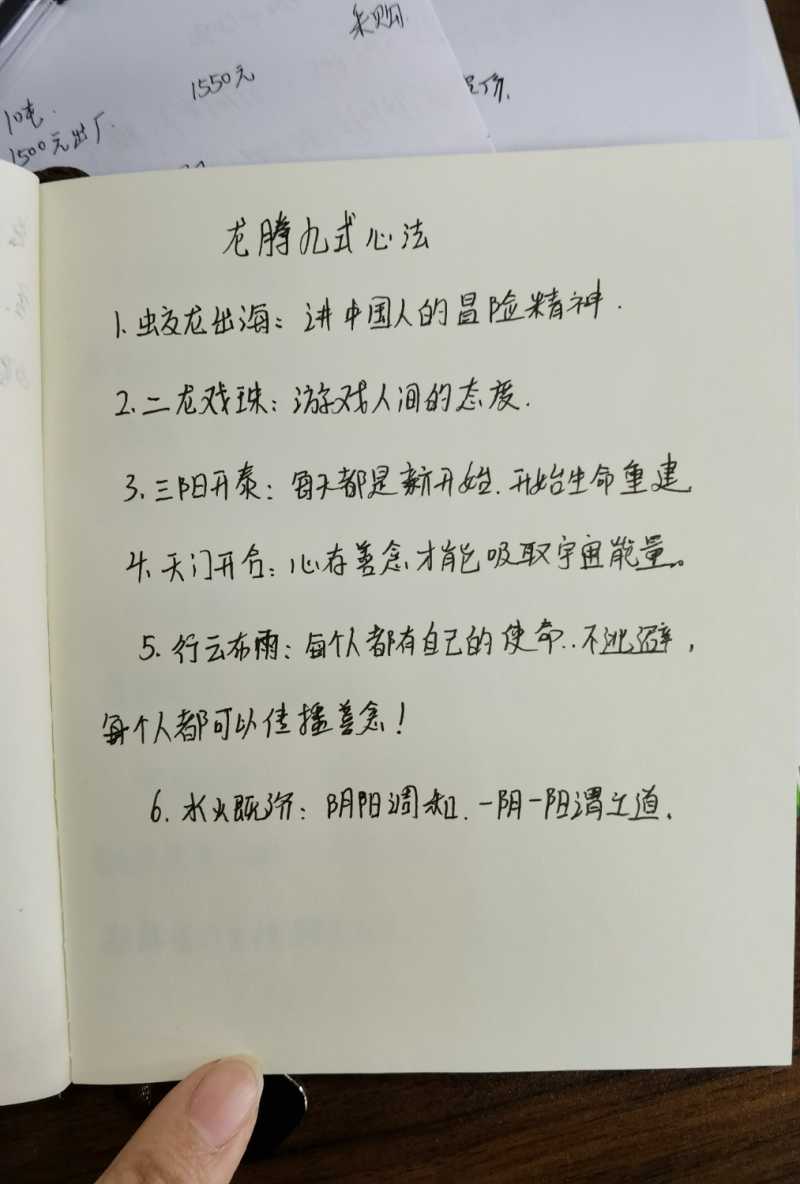 采购
1550元
10吨.
1500元出厂.
龙腾九式心法
1. 蛟龙出海：讲中国人的冒险精神.
2. 二龙戏珠：游戏人间的态度.
3. 三阳开泰：每天都是新开始.开始生命重建
4. 天门开合：心存善念才能吸取宇宙能量。
5. 行云布雨：每个人都有自己的使命..不逃避，
每个人都可以传播善念！
6. 水火既济：阴阳调和.一阴一阳谓之道.